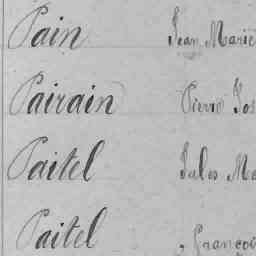 Pain Jean Marie
Pairain Pierre Jos
Paitel Jules Ma
Paitel François